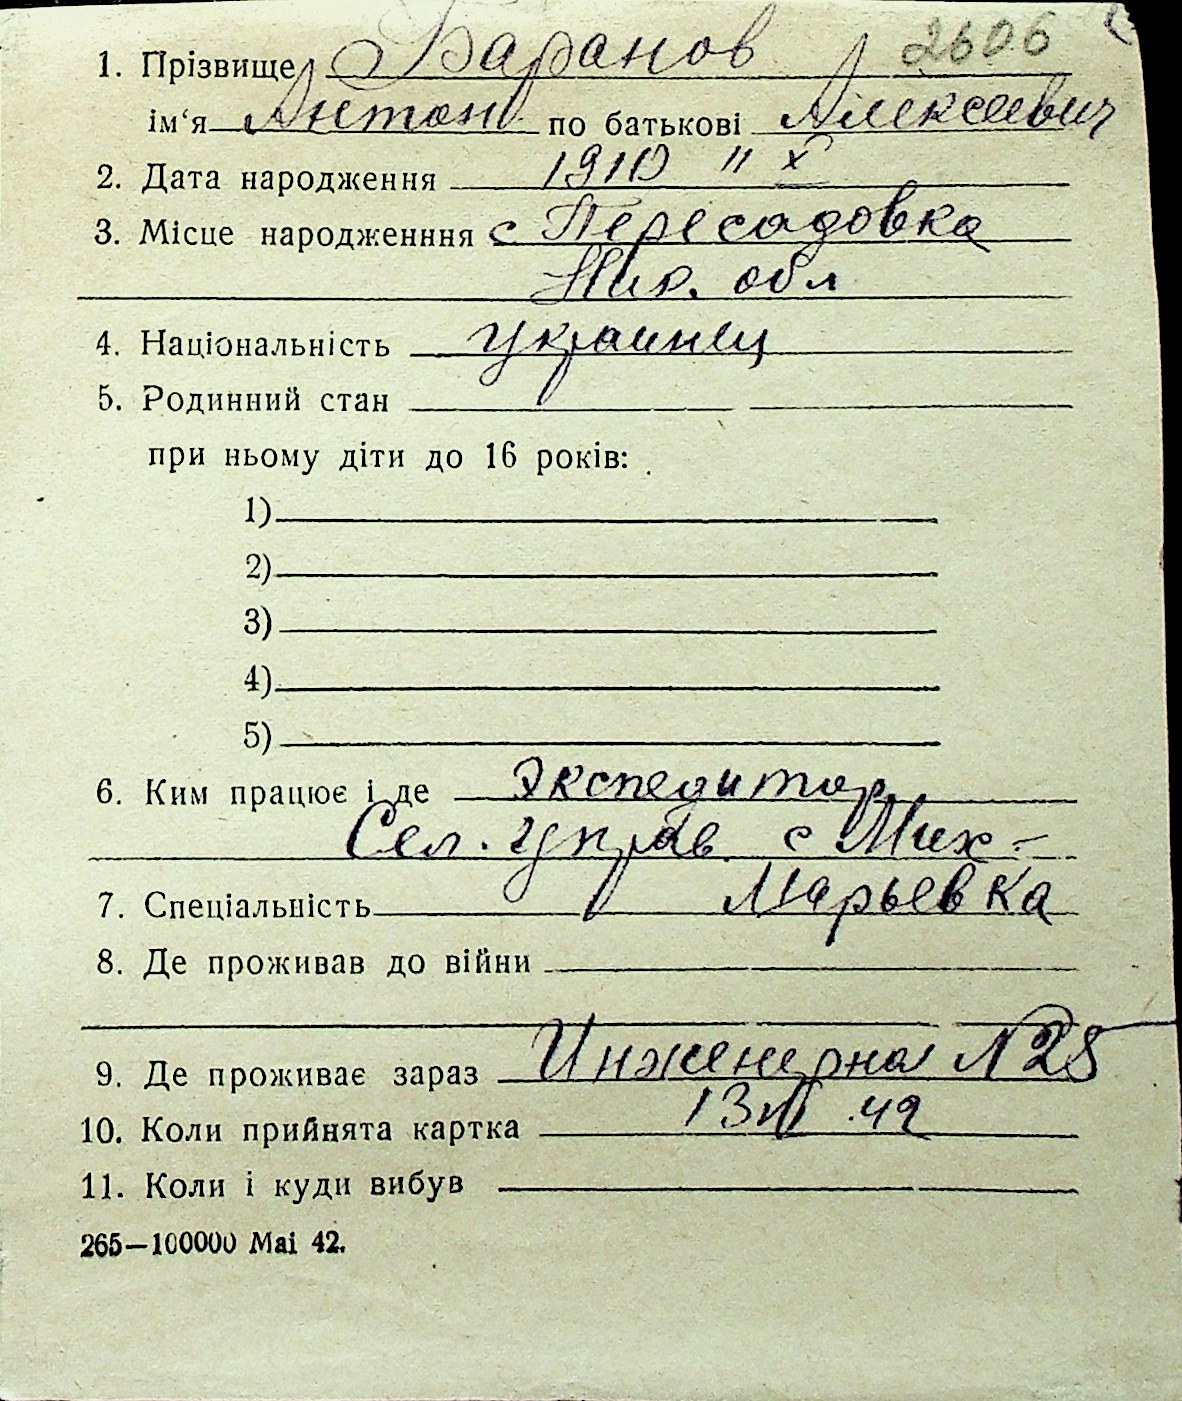 2606
1. Прізвище Баранов
ім‘я Антон по батькові Алексеевич
2. Дата народження 1910 11 X
3. Місце народженння с Пересадовка
Ник. обл
4. Національність украинец
5. Родинний стан
при ньому діти до 16 років:
1)
2)
3)
4)
5)
6. Ким працює і де Экспедитор
Сел. управ. с Мих-
7. Спеціальність Ларьевка
8. Де проживав до війни
9. Де проживає зараз Инженерная №25
10. Коли прийнята картка 42
11. Коли і куди вибув
265—100000 Маі 42.